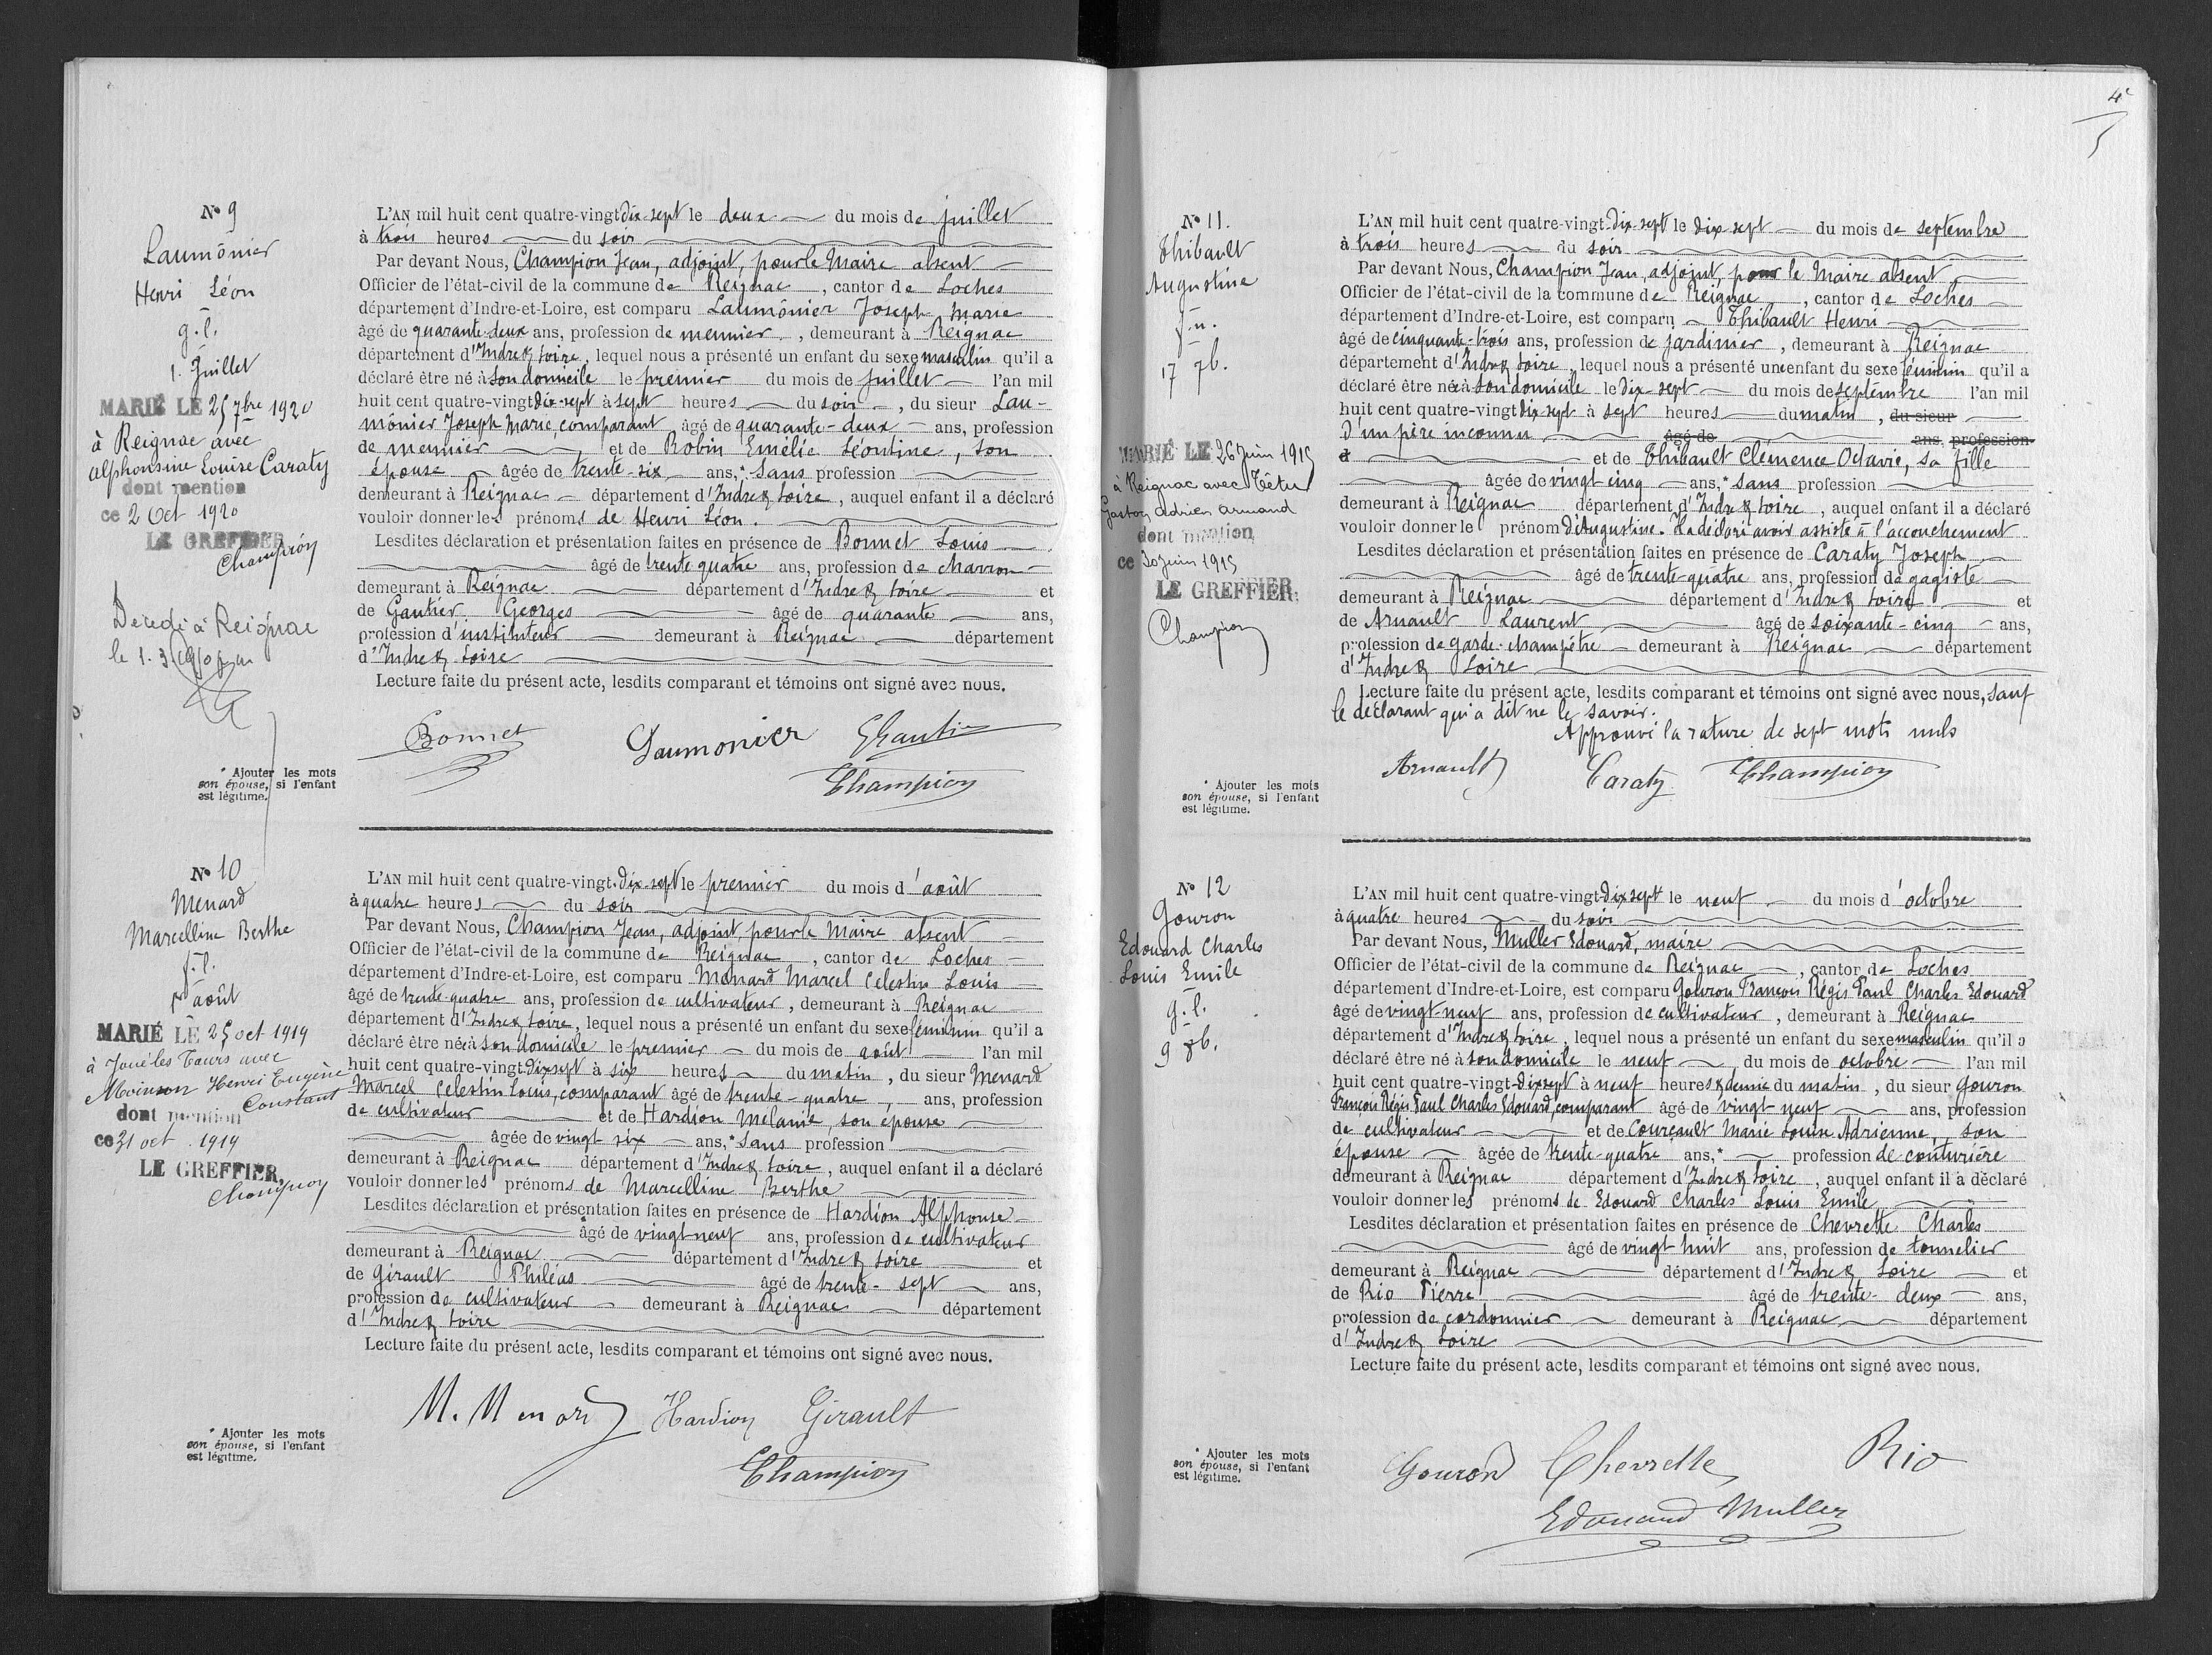 N° 9
Laumônier
Henri Léon
g. l.
1. Juillet
MARIÉ LE 25 7bre 1920
à Reignac avec
Alphonsine Louise Caraty
dont mention
ce 2 Oct 1920
LE GREFFIER
Champion
Décédé à Reignac
le 1. 3
* Ajouter les mots
son épouse, si l'enfant
est légitime.
L'AN mil huit cent quatre-vingt dix-sept le deux du mois de juillet
à trois heures du soir
Par devant Nous, Champion Jean, adjoint, pour le Maire absent
Officier de l'état-civil de la commune de Reignac, canton de Loches
département d'Indre-et-Loire, est comparu Laumônier Joseph Marie
âgé de quarante-deux ans, profession de meunier, demeurant à Reignac
département d'Indre & Loire, lequel nous a présenté un enfant du sexe masculin qu'il a
déclaré être né à son domicile le premier du mois de juillet l'an mil
huit cent quatre-vingt dix-sept à sept heures du soir, du sieur Lau-
mônier Joseph Marie, comparant âgé de quarante-deux ans, profession
de meunier et de Robin Emélie Léontine, son
épouse âgée de trente-six ans,* sans profession
demeurant à Reignac département d'Indre & Loire, auquel enfant il a déclaré
vouloir donner les prénoms de Henri Léon.
Lesdites déclaration et présentation faites en présence de Bonnet Louis
âgé de trente quatre ans, profession de charron
demeurant à Reignac département d'Indre & Loire et
de Gautier Georges âgé de quarante ans,
profession d'instituteur demeurant à Reignac département
d'Indre & Loire
Lecture faite du présent acte, lesdits comparant et témoins ont signé avec nous.
Bonnet Laumonier Gautier
Champion
N° 10
Menard
Marcelline Berthe
f. l.
1er août
MARIÉ LE 25 oct 1919
à Joué les Tours avec
Moinson Henri Eugène
Constant
dont mention
ce 31 oct. 1919
LE GREFFIER,
Champion
* Ajouter les mots
son épouse, si l'enfant
est légitime.
L'AN mil huit cent quatre-vingt-dix-sept le premier du mois d'août
à quatre heures du soir
Par devant Nous, Champion Jean, adjoint, pour le Maire absent
Officier de l'état-civil de la commune de Reignac, canton de Loches
département d'Indre-et-Loire, est comparu Menard Marcel Celestin Louis
âgé de trente-quatre ans, profession de cultivateur, demeurant à Reignac
département d'Indre & Loire, lequel nous a présenté un enfant du sexe féminin qu'il a
déclaré être née à son domicile le premier du mois de août l'an mil
huit cent quatre-vingt-dix sept à six heures du matin, du sieur Menard
Marcel Celestin Louis, comparant âgé de trente-quatre ans, profession
de cultivateur et de Hardion Mélanie, son épouse
âgée de vingt six ans,* sans profession
demeurant à Reignac département d'Indre & Loire, auquel enfant il a déclaré
vouloir donner les prénoms de Marcelline Berthe
Lesdites déclaration et présentation faites en présence de Hardion Alphonse
âgé de vingt neuf ans, profession de cultivateur
demeurant à Reignac département d'Indre & Loire et
de Girault Philéas âgé de trente-sept ans,
profession de cultivateur demeurant à Reignac département
d'Indre & Loire
Lecture faite du présent acte, lesdits comparant et témoins ont signé avec nous.
M. Menard Hardion Girault
Champion
4e
N° 11.
Thibault
Augustine
f. n.
17 7b.
MARIÉ LE 26 Juin 1915
à Reignac avec Têtu
Gaston Adrien Armand
dont mention
ce 30 Juin 1915
LE GREFFIER,
Champion
* Ajouter les mots
son épouse, si l'enfant
est légitime.
L'AN mil huit cent quatre-vingt-dix-sept le dix sept du mois de septembre
à trois heures du soir
Par devant Nous, Champion Jean, adjoint, pour le Maire absent
Officier de l'état-civil de la commune de Reignac, canton de Loches
département d'Indre-et-Loire, est comparu Thibault Henri
âgé de cinquante-trois ans, profession de jardinier, demeurant à Reignac
département d'Indre & Loire, lequel nous a présenté un enfant du sexe féminin qu'il a
déclaré être née à son domicile le dix sept du mois de septembre l'an mil
huit cent quatre-vingt dix-sept à sept heures du matin, du sieur
d'un père inconnu âgé de ans, profession
d et de Thibault Clémence Octavie, sa fille
âgée de vingt cinq ans,* sans profession
demeurant à Reignac département d'Indre & Loire, auquel enfant il a déclaré
vouloir donner le prénom d'Augustine. Il a déclaré avoir assisté à l'accouchement
Lesdites déclaration et présentation faites en présence de Caraty Joseph
âgé de trente-quatre ans, profession de gagiste
demeurant à Reignac département d'Indre & Loire et
de Arnault Laurent âgé de soixante-cinq ans,
profession de garde-champêtre demeurant à Reignac département
d'Indre & Loire
Lecture faite du présent acte, lesdits comparant et témoins ont signé avec nous, sauf
le déclarant qui a dit ne le savoir.
Approuvé la rature de sept mots nuls
Arnault Caraty Champion
N° 12
Gouron
Edouard Charles
Louis Emile
g. l.
9 8b.
* Ajouter les mots
son épouse, si l'enfant
est légitime.
L'AN mil huit cent quatre-vingt-dix sept le neuf du mois d'octobre
à quatre heures du soir
Par devant Nous, Muller Edouard, maire
Officier de l'état-civil de la commune de Reignac, canton de Loches
département d'Indre-et-Loire, est comparu Gouron François Régis Paul Charles Edouard
âgé de vingt-neuf ans, profession de cultivateur, demeurant à Reignac
département d'Indre & Loire, lequel nous a présenté un enfant du sexe masculin qu'il a
déclaré être né à son domicile le neuf du mois de octobre l'an mil
huit cent quatre-vingt-dix sept à neuf heures & demie du matin, du sieur Gouron
François Régis Paul Charles Edouard, comparant âgé de vingt neuf ans, profession
de cultivateur et de Courcault Marie Louise Adrienne, son
épouse âgée de trente-quatre ans,* profession de couturière
demeurant à Reignac département d'Indre & Loire, auquel enfant il a déclaré
vouloir donner les prénoms de Edouard Charles Louis Emile
Lesdites déclaration et présentation faites en présence de Chevrette Charles
âgé de vingt huit ans, profession de tonnelier
demeurant à Reignac département d'Indre & Loire et
de Rio Pierre âgé de trente-deux ans,
profession de cordonnier demeurant à Reignac département
d'Indre & Loire
Lecture faite du présent acte, lesdits comparant et témoins ont signé avec nous.
Gouron Chevrette Rio
Edouard Muller